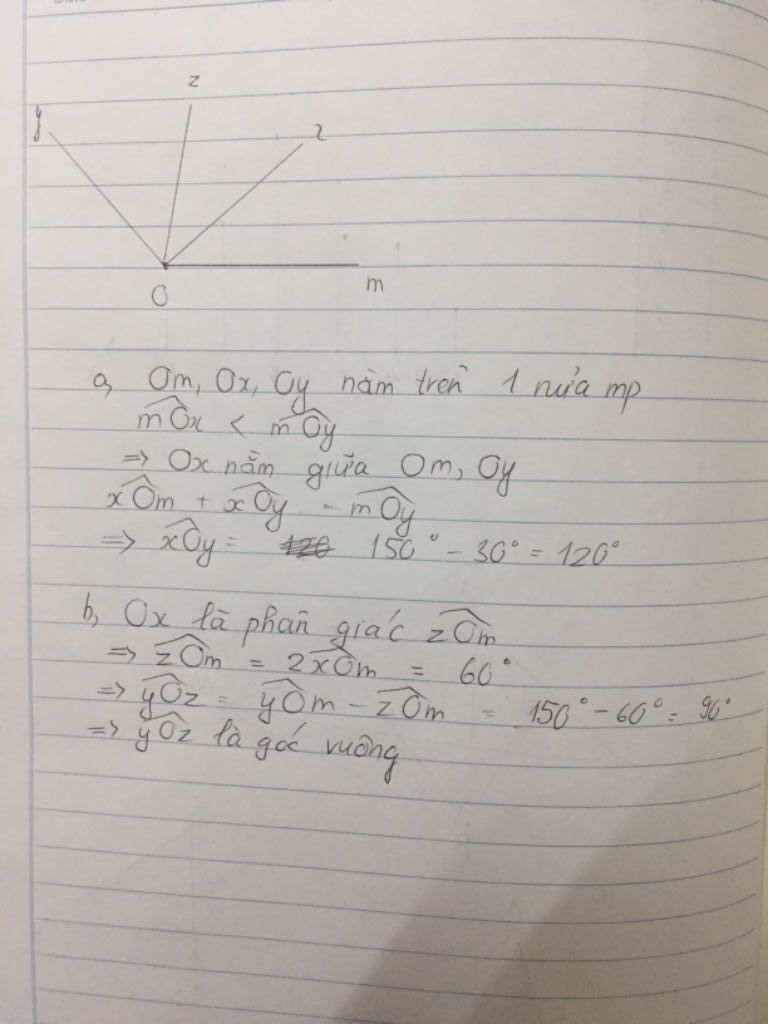 z
y
x
O
m
a, Om, Ox, Oy nằm trên 1 nửa mp
m̂Ox < m̂Oy
=> Ox nằm giữa Om, Oy
x̂Om + x̂Oy = m̂Oy
=> x̂Oy = 150° - 30° = 120°
b, Ox là phân giác ẑOm
=> ẑOm = 2x̂Om = 60°
=> ŷOz = ŷOm - ẑOm = 150° - 60° = 90°
=> ŷOz là góc vuông